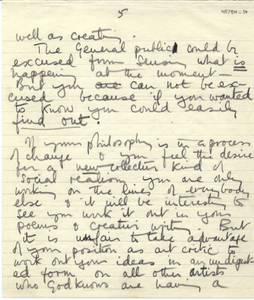 5
well as creative.
The General public could be
excused from sensing what is
happening at the moment —
But you are can not be ex-
cused because if you wanted
to know you could easily
find out.
If your philosophy is in a process
of change & you feel the desire
for a new collective kind of
social realism you are only
working on the lines of everybody
else & it will be interesting to
see you work it out in your
poems & creative writing. But
it is unfair to take advantage
of your position as art critic to
work out your ideas in an undigest-
ed form on all other artists
who God knows are having a